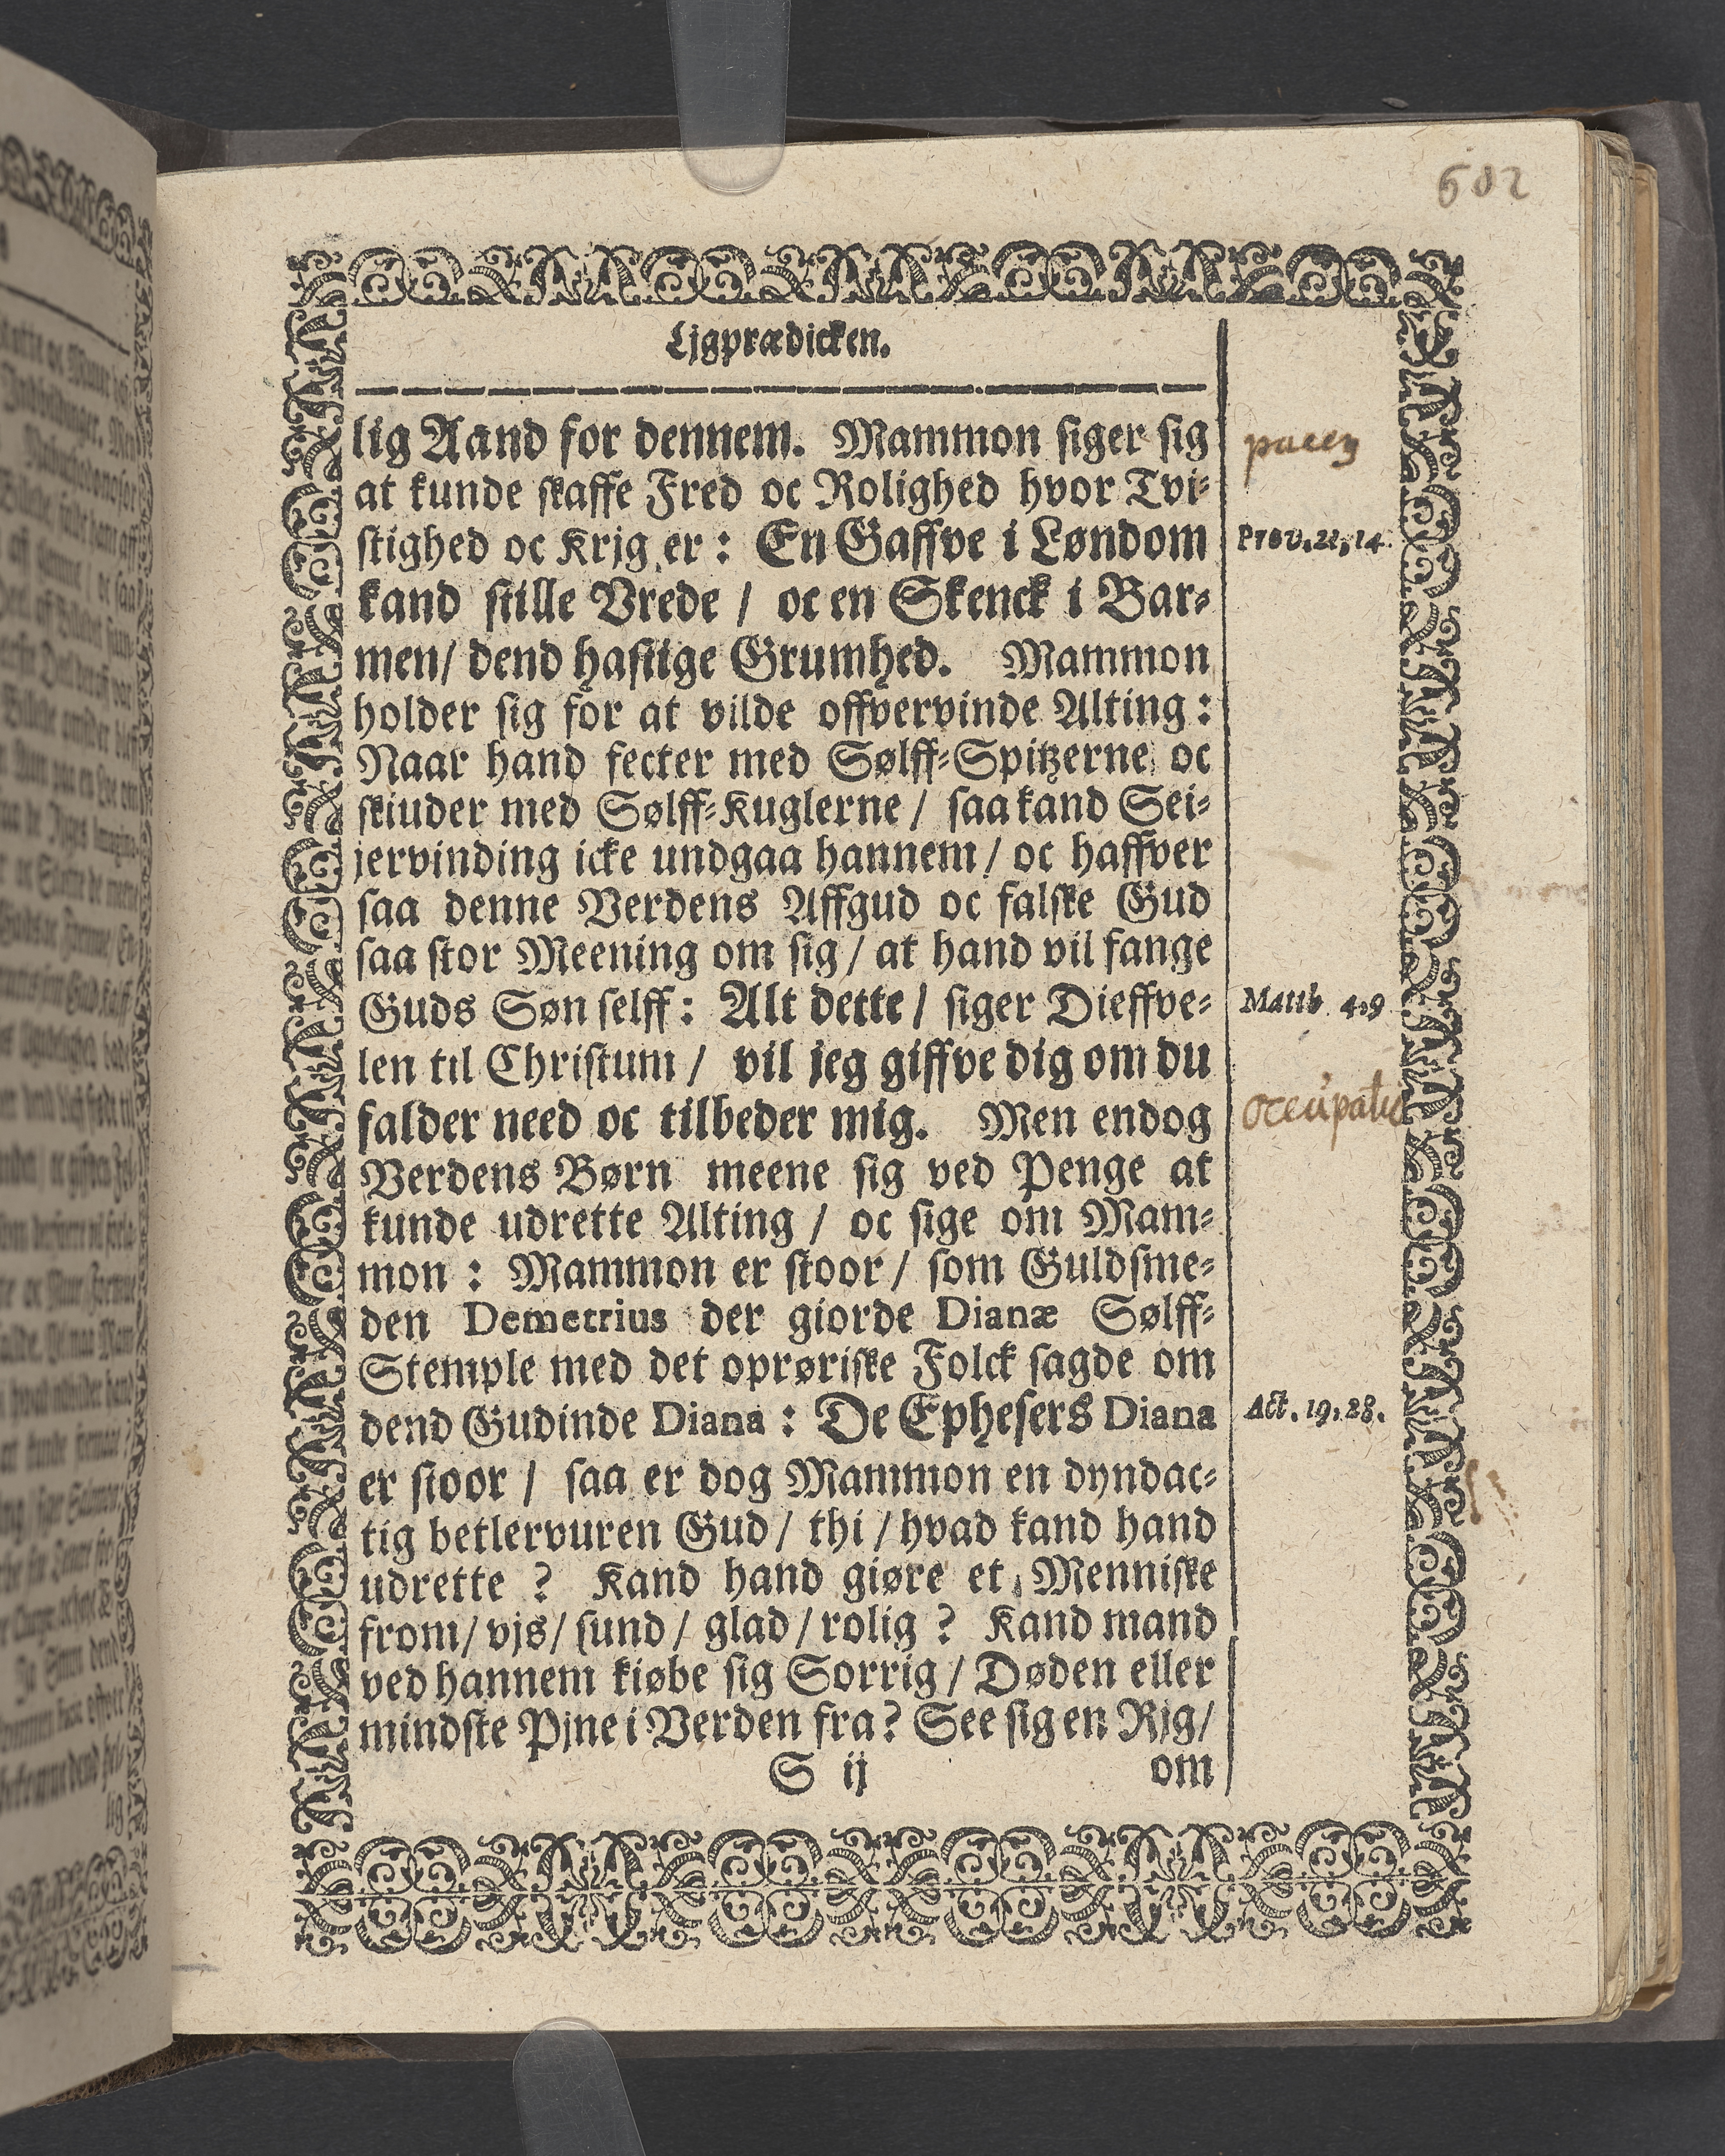 602
Ljgprædicken.
lig Aand for dennem. Mammon siger sig
pacem
at kunde skaffe Fred oc Rolighed hvor Tvi-
stighed oc Krjg er: En Gaffve i Løndom
Prov. 21, 14.
kand stille Vrede / oc en Skenck i Bar-
men/ dend hastige Grumhed. Mammon
holder sig for at vilde offvervinde Alting:
Naar hand fecter med Sølff-Spitzerne oc
skiuder med Sølff-Kuglerne / saa kand Sei-
jervinding icke undgaa hannem / oc haffver
saa denne Verdens Affgud oc falske Gud
saa stor Meening om sig / at hand vil fange
Guds Søn selff: Alt dette / siger Dieffve-
Matth 4, 9
len til Christum / vil jeg giffve dig om du
occupatio
falder need oc tilbeder mig. Men endog
Verdens Børn meene sig ved Penge at
kunde udrette Alting / oc sige om Mam-
mon: Mammon er stoor / som Guldsme-
den Demetrius der giorde Dianæ Sølff-
Stemple med det oprøriske Folck sagde om
dend Gudinde Diana: De Ephesers Diana
Act. 19, 28.
er stoor / saa er dog Mammon en dyndac-
tig betlervuren Gud / thi / hvad kand hand
udrette? Kand hand giøre et Menniske
from/ vjs/ sund / glad / rolig? Kand mand
ved hannem kiøbe sig Sorrig / Døden eller
mindste Pjne i Verden fra? See sig en Rjg/
S ij
om